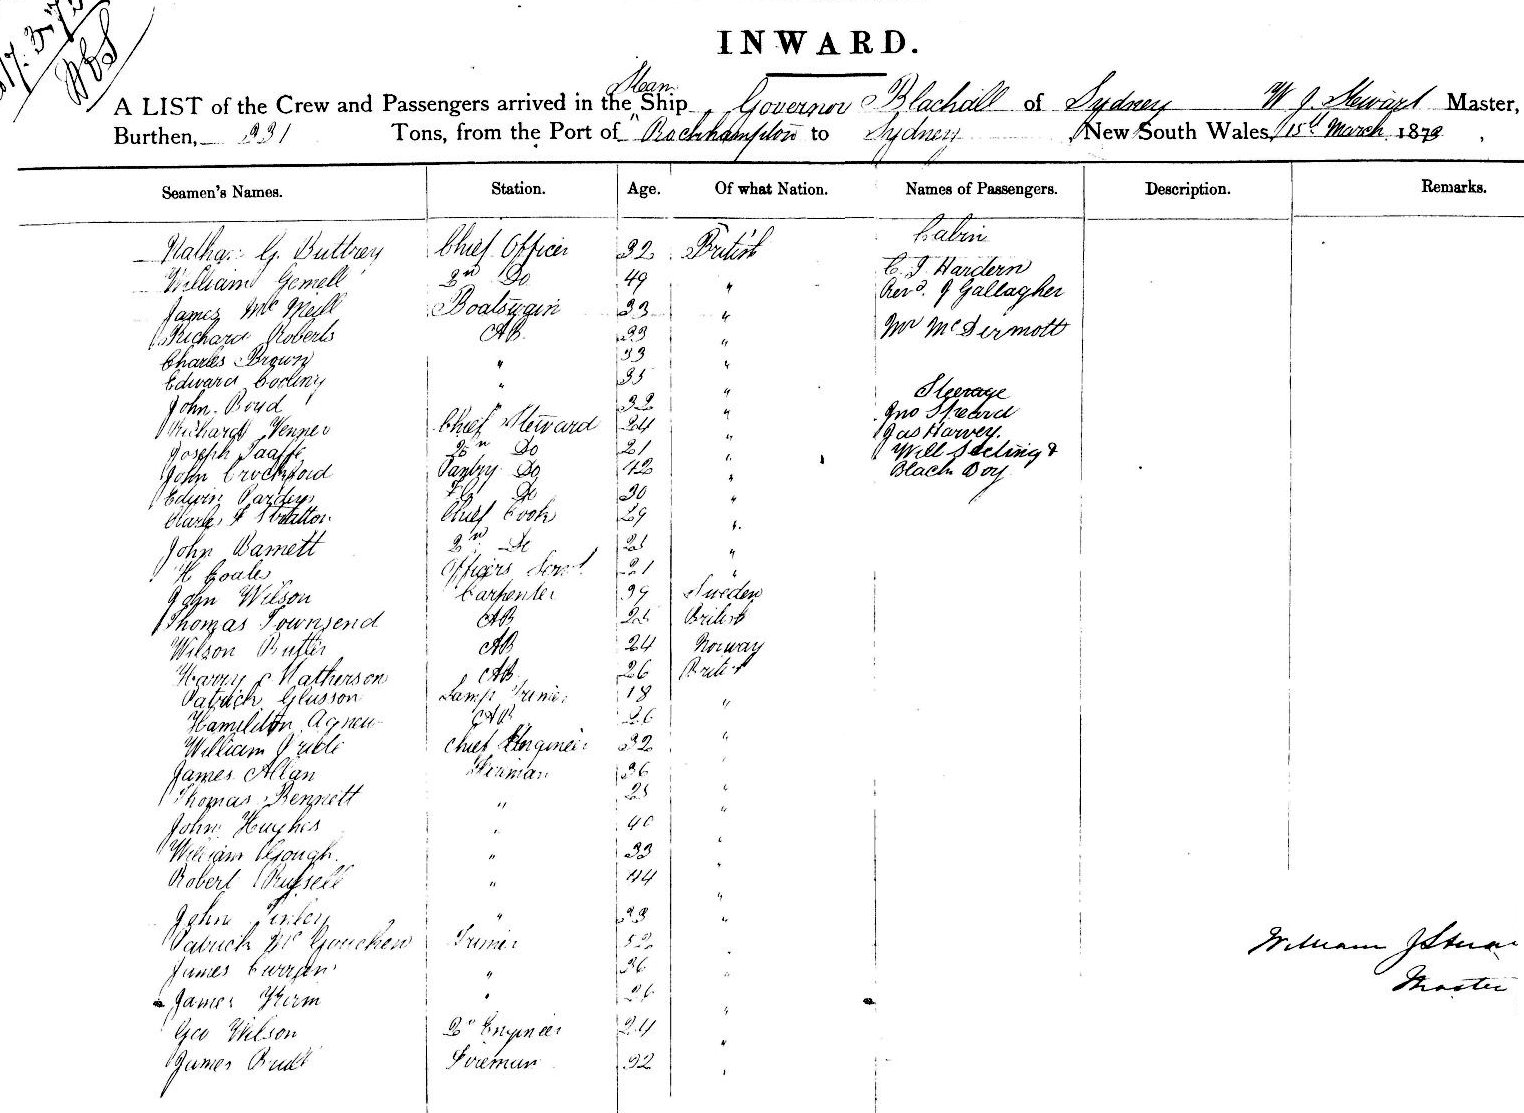 17.3.73
INWARD.
Steam
A LIST of the Crew and Passengers arrived in the Ship Governor Blackall of Sydney W J Stewart Master,
Burthen, 331 Tons, from the Port of Rockhampton to Sydney, New South Wales, 15th March 1873,
Seamen's Names. Station. Age. Of what Nation. Names of Passengers. Description. Remarks.
Cabin
G. Buttrey Chief Officer 32 British
William Gemell 2nd Do 49 " C. J Hardern
Revd. J Gallagher
James McNeill Boatswain 33 "
Richard Roberts AB 33 " Mr McDermott
Charles Brown " 33 "
Edward " 35 " Steerage
John Boyd " 32 " Jno
Richard Venner Chief Steward 24 " Jas Harvey.
Joseph Taaffe 2nd Do 21 " Will &
John Crockford Pantry Do 42 " Black Boy
Edwin Do 30 "
Charles F Stratton Chief Cook 29 "
John Barnett 2nd Do "
H Coates Officers Servt. 21 "
John Wilson Carpenter 39 Sweden
Thomas Townsend AB 25 British
Wilson AB 24 Norway
Harry Matherson AB 26 British
Patrick Glusson Lamp Trimer 18 "
Hamilton Agnew AB 26
William Chief Engineer 32 "
James Allan Fireman 36 "
Thomas Bennett " 25 "
John Hughes " 40 "
William Gough " 33 "
Robert Russell " 44 "
John " 33 "
Patrick Trimer 52 "
William J Stewart
James Curran " 36 "
Master
James " 26 "
Geo Wilson 2d Engineer 24 "
James Foreman 32 "